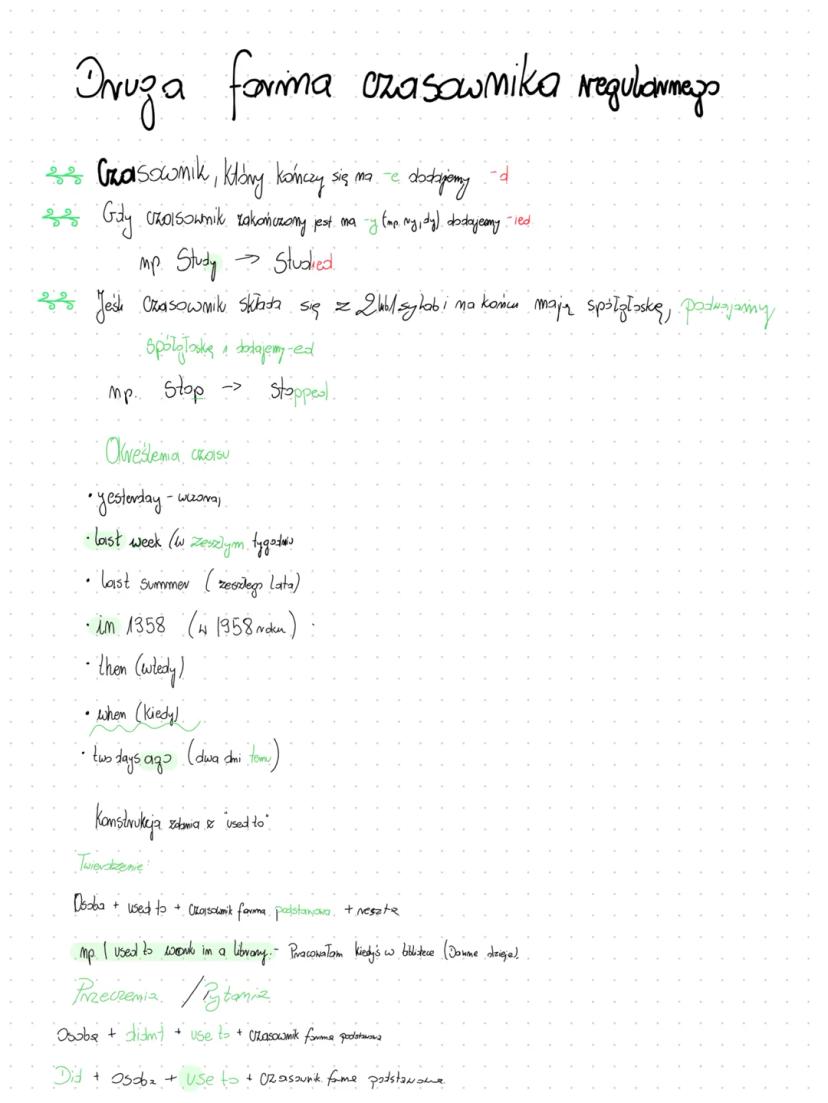 Druga forma czasownika regularnego
Czasownik, który kończy się na -e dodajemy -d
Gdy czasownik zakończony jest na -y (np. ry, dy) dodajemy -ied
np Study -> Studied
Jeśli czasownik składa się z 2 lub 1 sylab i na końcu mają spółgłoskę, podwajamy
spółgłoskę i dodajemy -ed
np. Stop -> stopped
Określenia czasu
• yesterday - wczoraj
• last week (w zeszłym tygodniu
• last summer (zeszłego lata)
• in 1358 (w 1958 roku)
• then (wtedy)
• when (kiedy)
• two days ago (dwa dni temu)
Konstrukcja zdania z "used to"
Twierdzenie:
Osoba + used to + czasownik forma podstawowa + reszta
np I used to work in a library. - Pracowałam kiedyś w bibliotece (Dawne dzieje).
Przeczenia / Pytania
Osoba + didnt + use to + czasownik forma podstawowa
Did + osoba + use to + czasownik forma podstawowa